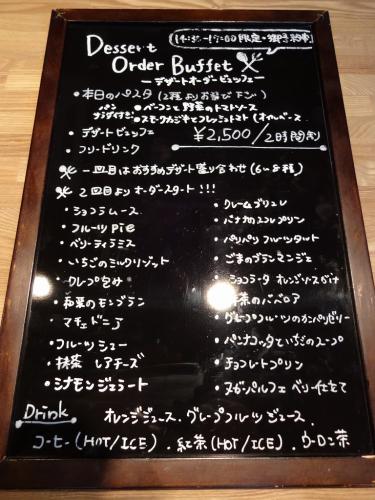 14:30〜17:00 限定・要予約
Dessert
Order Buffet
ーデザートオーダービュッフェー
・本日のパスタ(2種よりお選び下さい)
パン ●ベーコンと野菜のトマトソース
●スモークカジキとフレッシュトマト(オイルベース)
・デザートビュッフェ
¥2,500/2時間制
・フリードリンク
一回目はおすすめデザート盛り合わせ(6〜8種)
2回目よりオーダースタート!!!
・ショコラムース
・フルーツpie
・ベリーティラミス
・いちごのミルクリゾット
・クレープ包み
・和栗のモンブラン
・マチェドニア
・フルーツシュー
・抹茶 レアチーズ
・シナモンジェラート
・クレームブリュレ
・バナナカスタプリン
・パリパリフルーツタルト
・ごまのブランマンジェ
・ショコラータ オレンジソースがけ
茶のババロア
・グレープフルーツのカンパリゼリー
・パンナコッタといちごのスープ
・チョコレートプリン
・ヌガーパルフェ ベリー仕立て
Drink
オレンジジュース、グレープフルーツジュース、
コーヒー(HOT/ICE)、紅茶(HOT/ICE)、ウーロン茶